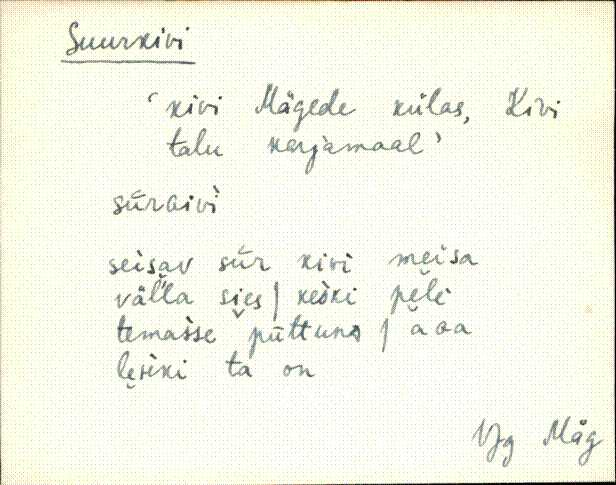 Suurkivi
‘kivi Mägede külas, Kivi
talu karjamaal’
sūrɢivì
seisav sūr kivì meisa
välla sies | keski pēlè
temasse pūttunɒ | äɢa
lesìki ta on
Vg Mäg